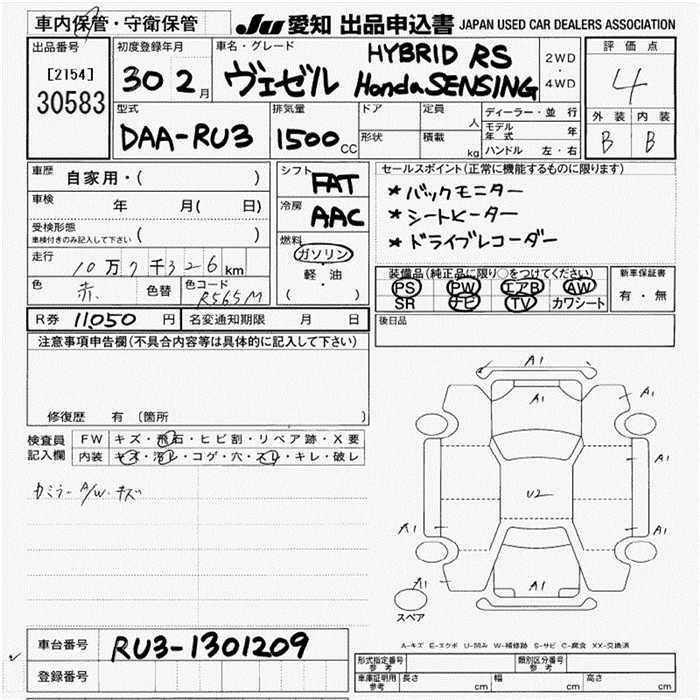 車内保管・守衛保管
JU 愛知 出品申込書 JAPAN USED CAR DEALERS ASSOCIATION
出品番号
[2154]
30583
初度登録年月
30 2月
車名・グレード
ヴェゼル
HYBRID RS
Honda SENSING
2WD
・
4WD
評価点
4
外装 内装
B B
型式
DAA-RU3
排気量
1500cc
ドア
形状
定員
人
積載
kg
ディーラー・並行
モデル年式 年
ハンドル 左・右
車歴 自家用・( )
車検 年 月( 日)
受検形態
車検付きのみ記入して下さい ( )
走行 10万7千326km
色 赤 色替 色コード R565M
シフト FAT
冷房 AAC
燃料
ガソリン
・
軽・油
( )
セールスポイント(正常に機能するものに限ります)
*バックモニター
*シートヒーター
*ドライブレコーダー
装備品(純正品に限り○をつけてください)
PS PW エアB AW
SR ナビ TV カワシート
新車保証書
有・無
後日品
R券 11,050円 名変通知期限 月 日
注意事項申告欄(不具合内容等は具体的に記入して下さい)
修復歴 有(箇所 )
検査員記入欄
FW キズ・飛石・ヒビ割・リペア跡・X要
内装 キズ・汚レ・コゲ・穴・スレ・キレ・破レ
カミラー A/W・キズ
A1
A1
A1
A1
U2
A1
A1
A1
A1
スペア
A-キズ E-エクボ U-凹み W-補修跡 S-サビ C-腐食 XX-交換済
車台番号 RU3-1301209
登録番号
型式指定番号 参考
類別区分番号 参考
車庫証明用 参考 長さ cm 幅 cm 高さ cm